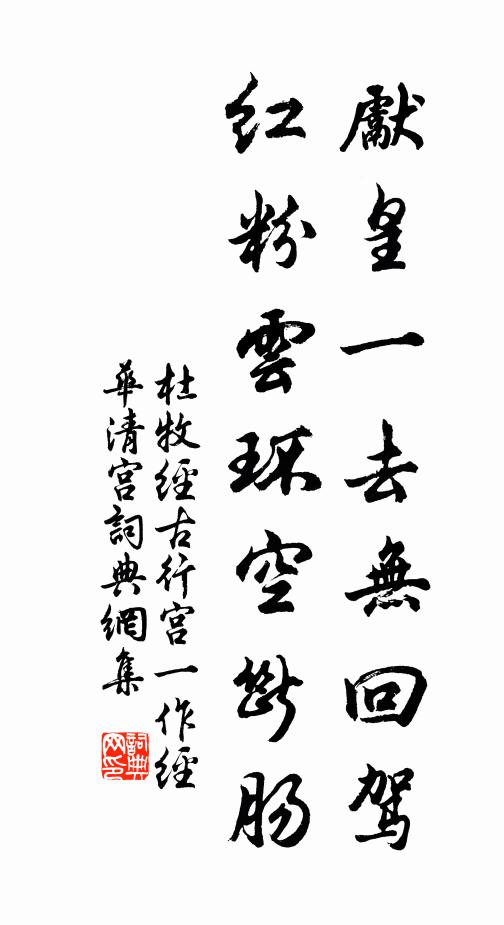 獻皇一去無回駕
紅粉雲环空斷腸
杜牧經古行宮一作經
華清宮詞典網集
詞典网印